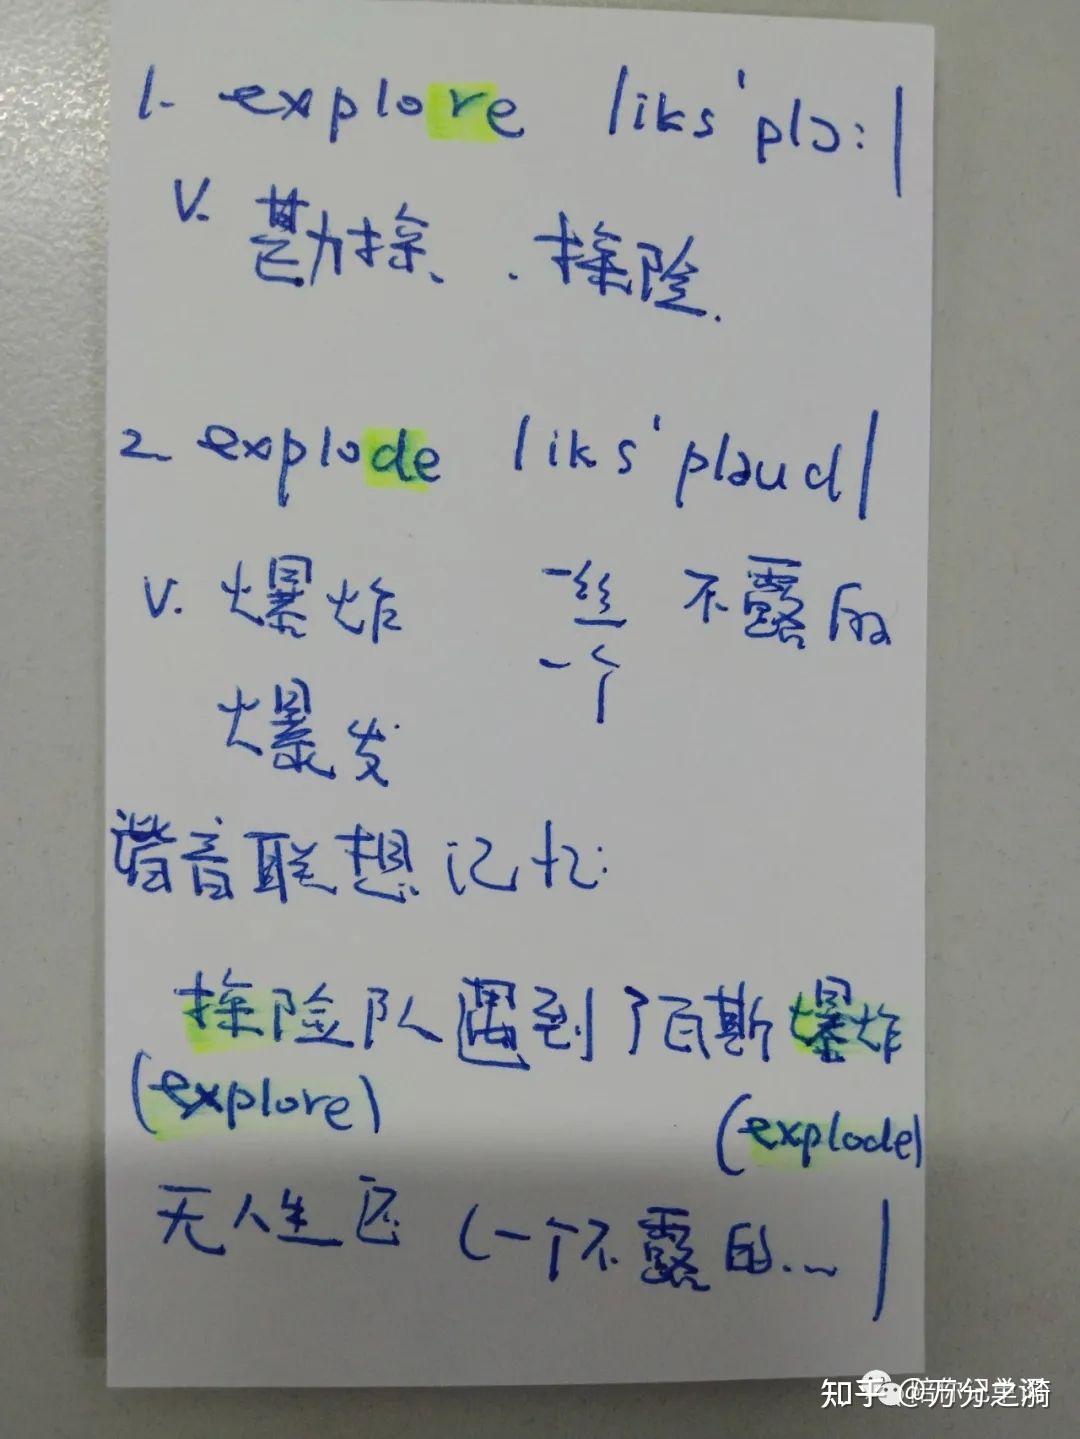 1. explore /iks'plɔ:/
v. 勘探、. 探险.
2 explode /iks'pləud/
v. 爆炸 一丝 不露的
一个
爆发
谐音联想记忆:
探险队遇到了瓦斯爆炸
(explore)
(explode)
无人生还 (一个不露的...)
知乎 @万分之漪